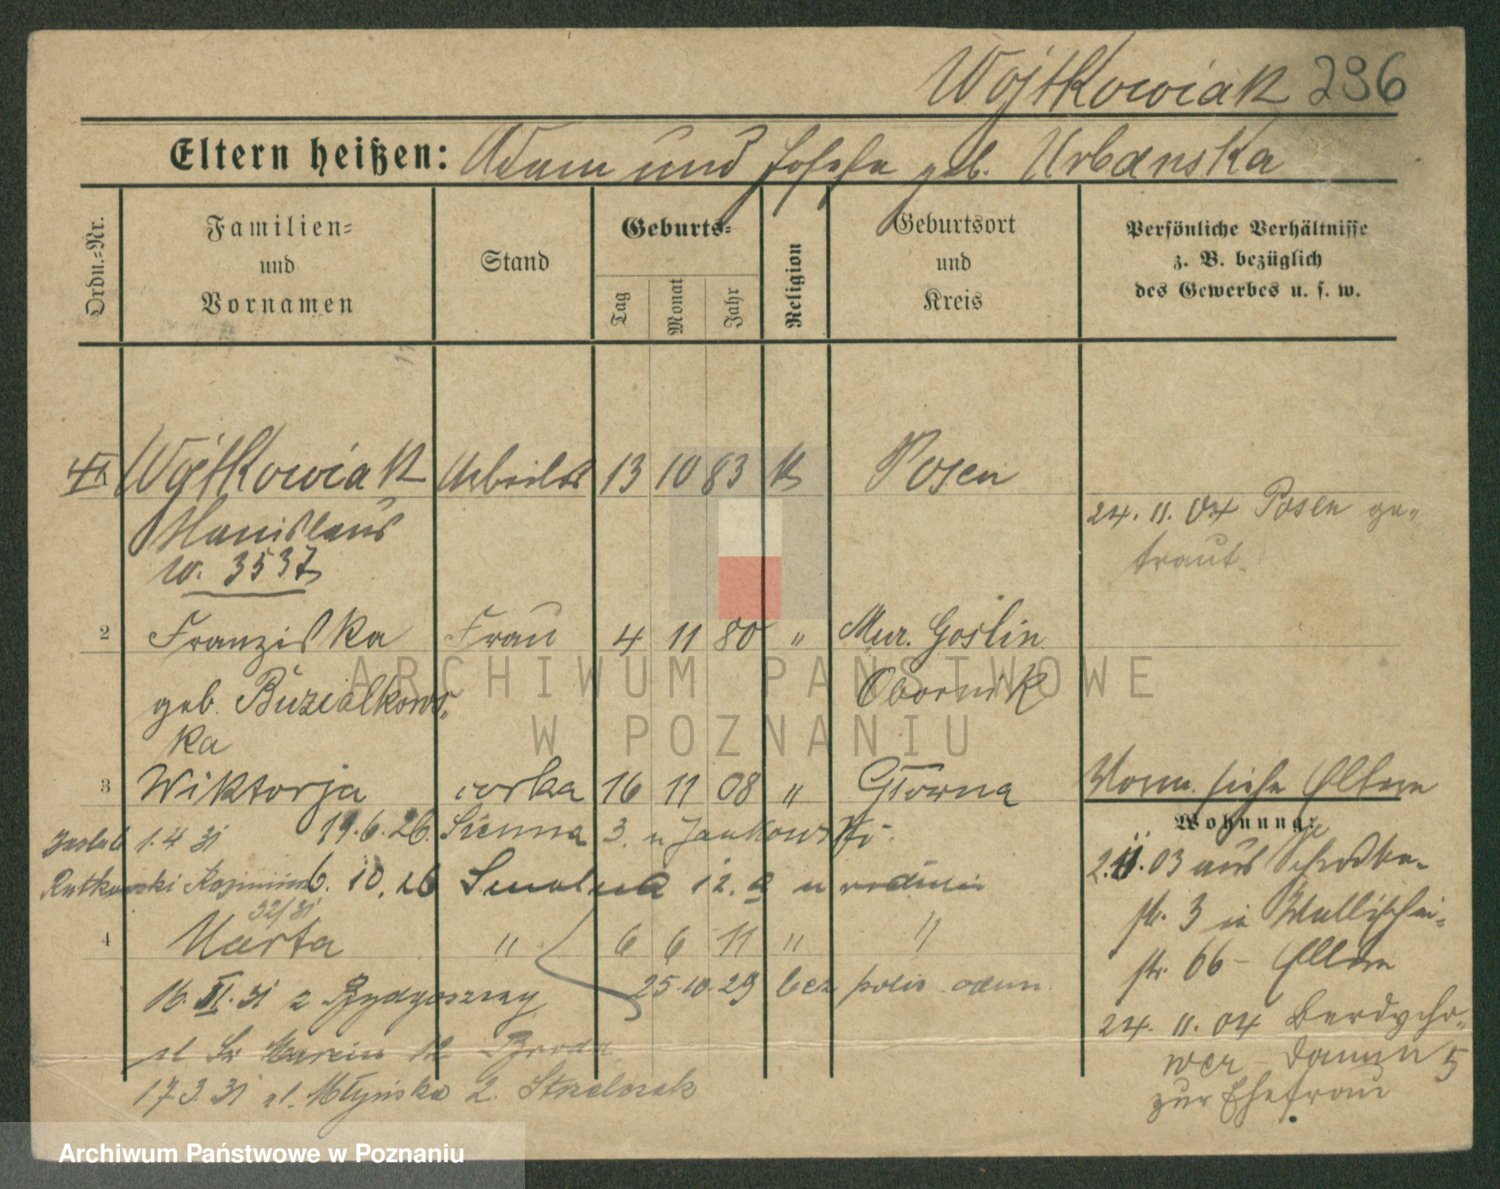 Wojtkowiak 296
Eltern heißen: Adam und Josefa geb. Urbanska
Ordn.-Nr.
Familien-
und
Vornamen
Stand
Geburts-
Tag
Monat
Jahr
Religion
Geburtsort
und
Kreis
Persönliche Verhältnisse
z. B. bezüglich
des Gewerbes u. s. w.
Wojtkowiak Arbeiter 13 10 83 K Posen
Stanislaus
w. 3537
24. 11. 04 Posen ge-
traut.
2 Franziska Frau 4 11 80 " Mur. Goslin
geb. Buzialkows- Obornik
ka
3 Wiktorja corka 16 11 08 " Głowna
Vorm. siehe Eltern
Wohnung:
1.4 31 19.6.26. Sienna 3. u Jankowski
Rutkowski Kazimierz 6. 10. 26 Smolna 12. a u rodzin
32/31
4 Marta " 6 6 11 " "
16. II. 31 z Bydgoszczy 25.10.29 bez polic. odm.
ul Św Marcin 12
17 3 31 ul. Młyńska 2.
2. 11. 03 aus Schrodka-
str. 3 in Wallischei-
str. 66 - Eltern
24. 11. 04 Berdycho-
wer - Damm 5
zur Ehefrau
ARCHIWUM PAŃSTWOWE
W POZNANIU
Archiwum Państwowe w Poznaniu